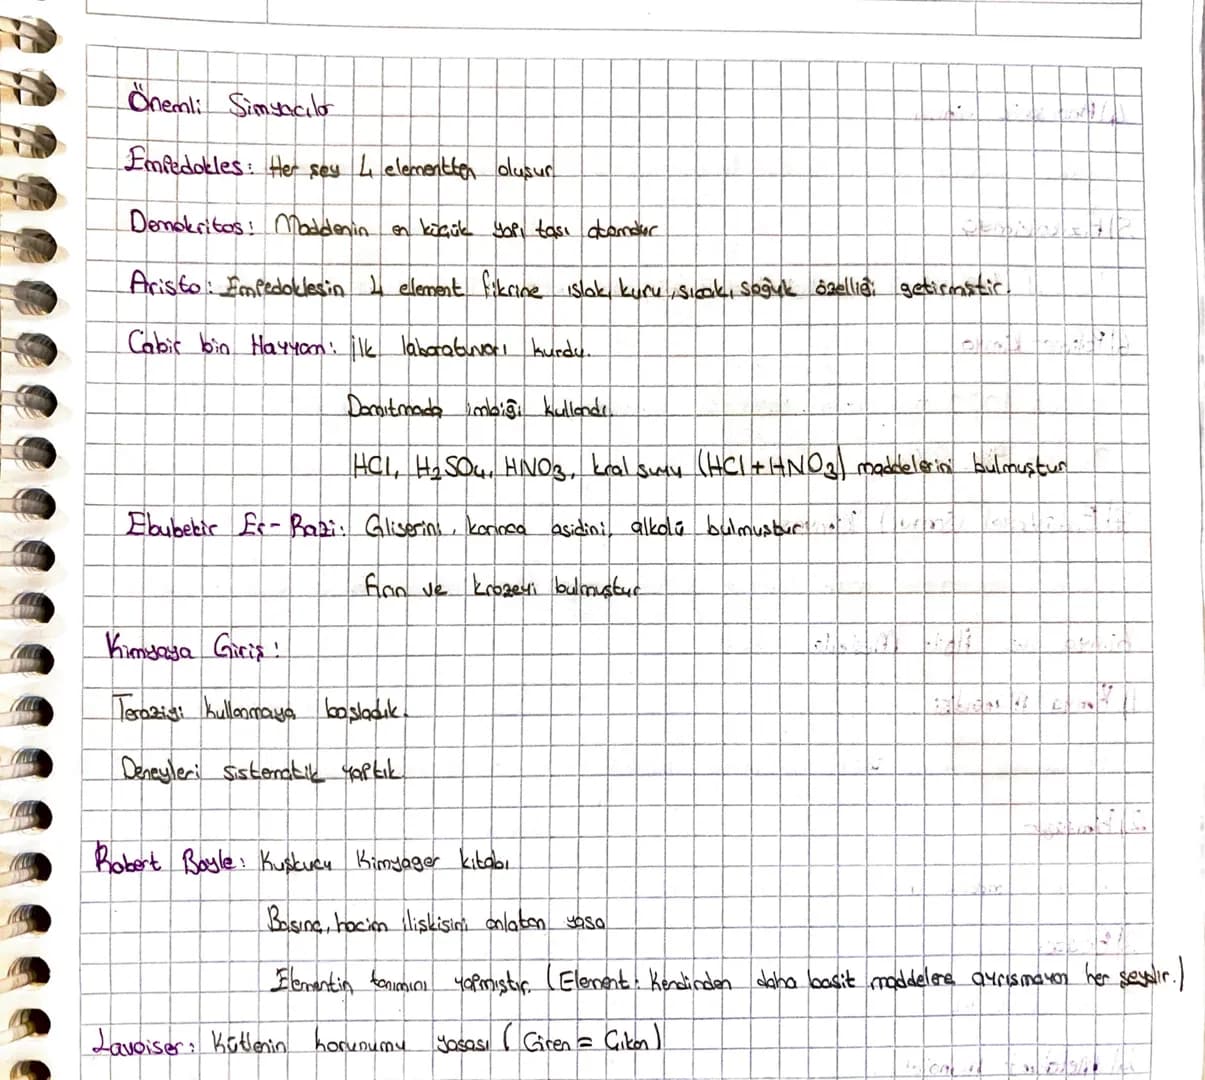 Önemli Simyacılar
Empedokles: Her şey 4 elementten oluşur
Demokritos: Maddenin en küçük yapı taşı atomdur
Aristo: Empedoklesin 4 element fikrine ıslak, kuru, sıcak, soğuk özelliği getirmiştir.
Cabir bin Hayyan: ilk laboratuvarı kurdu.
Damıtmada imbiği kullandı.
HCl, H₂SO₄, HNO₃, kral suyu (HCl+HNO₃) maddelerini bulmuştur
Ebubekir Er-Razi: Gliserini, karınca asidini, alkolü bulmuştur
fırın ve krozeyi bulmuştur
Kimyaya Giriş:
Teraziyi kullanmaya başladık.
Deneyleri sistematik yaptık
Robert Boyle: Kuşkucu Kimyager kitabı
Basınç, hacim ilişkisini anlatan yasa
Elementin tanımını yapmıştır. (Element: Kendinden daha basit maddelere ayrışmayan her şeydir.)
Lavoiser: Kütlenin korunumu yasası (Giren = Çıkan)